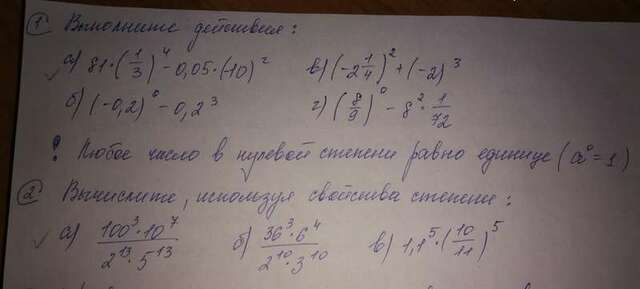 ① Выполните действия:
а) 81·(1/3)⁴ - 0,05·(-10)² в) (-2 1/4)² + (-2)³
б) (-0,2)⁰ - 0,2³ г) (8/9)⁰ - 8²·1/72
! Любое число в нулевой степени равно единице (a⁰=1)
② Вычислите, используя свойства степени:
а) 100³·10⁷/2¹³·5¹³ б) 36³·6⁴/2¹⁰·3¹⁰ в) 1,1⁵·(10/11)⁵